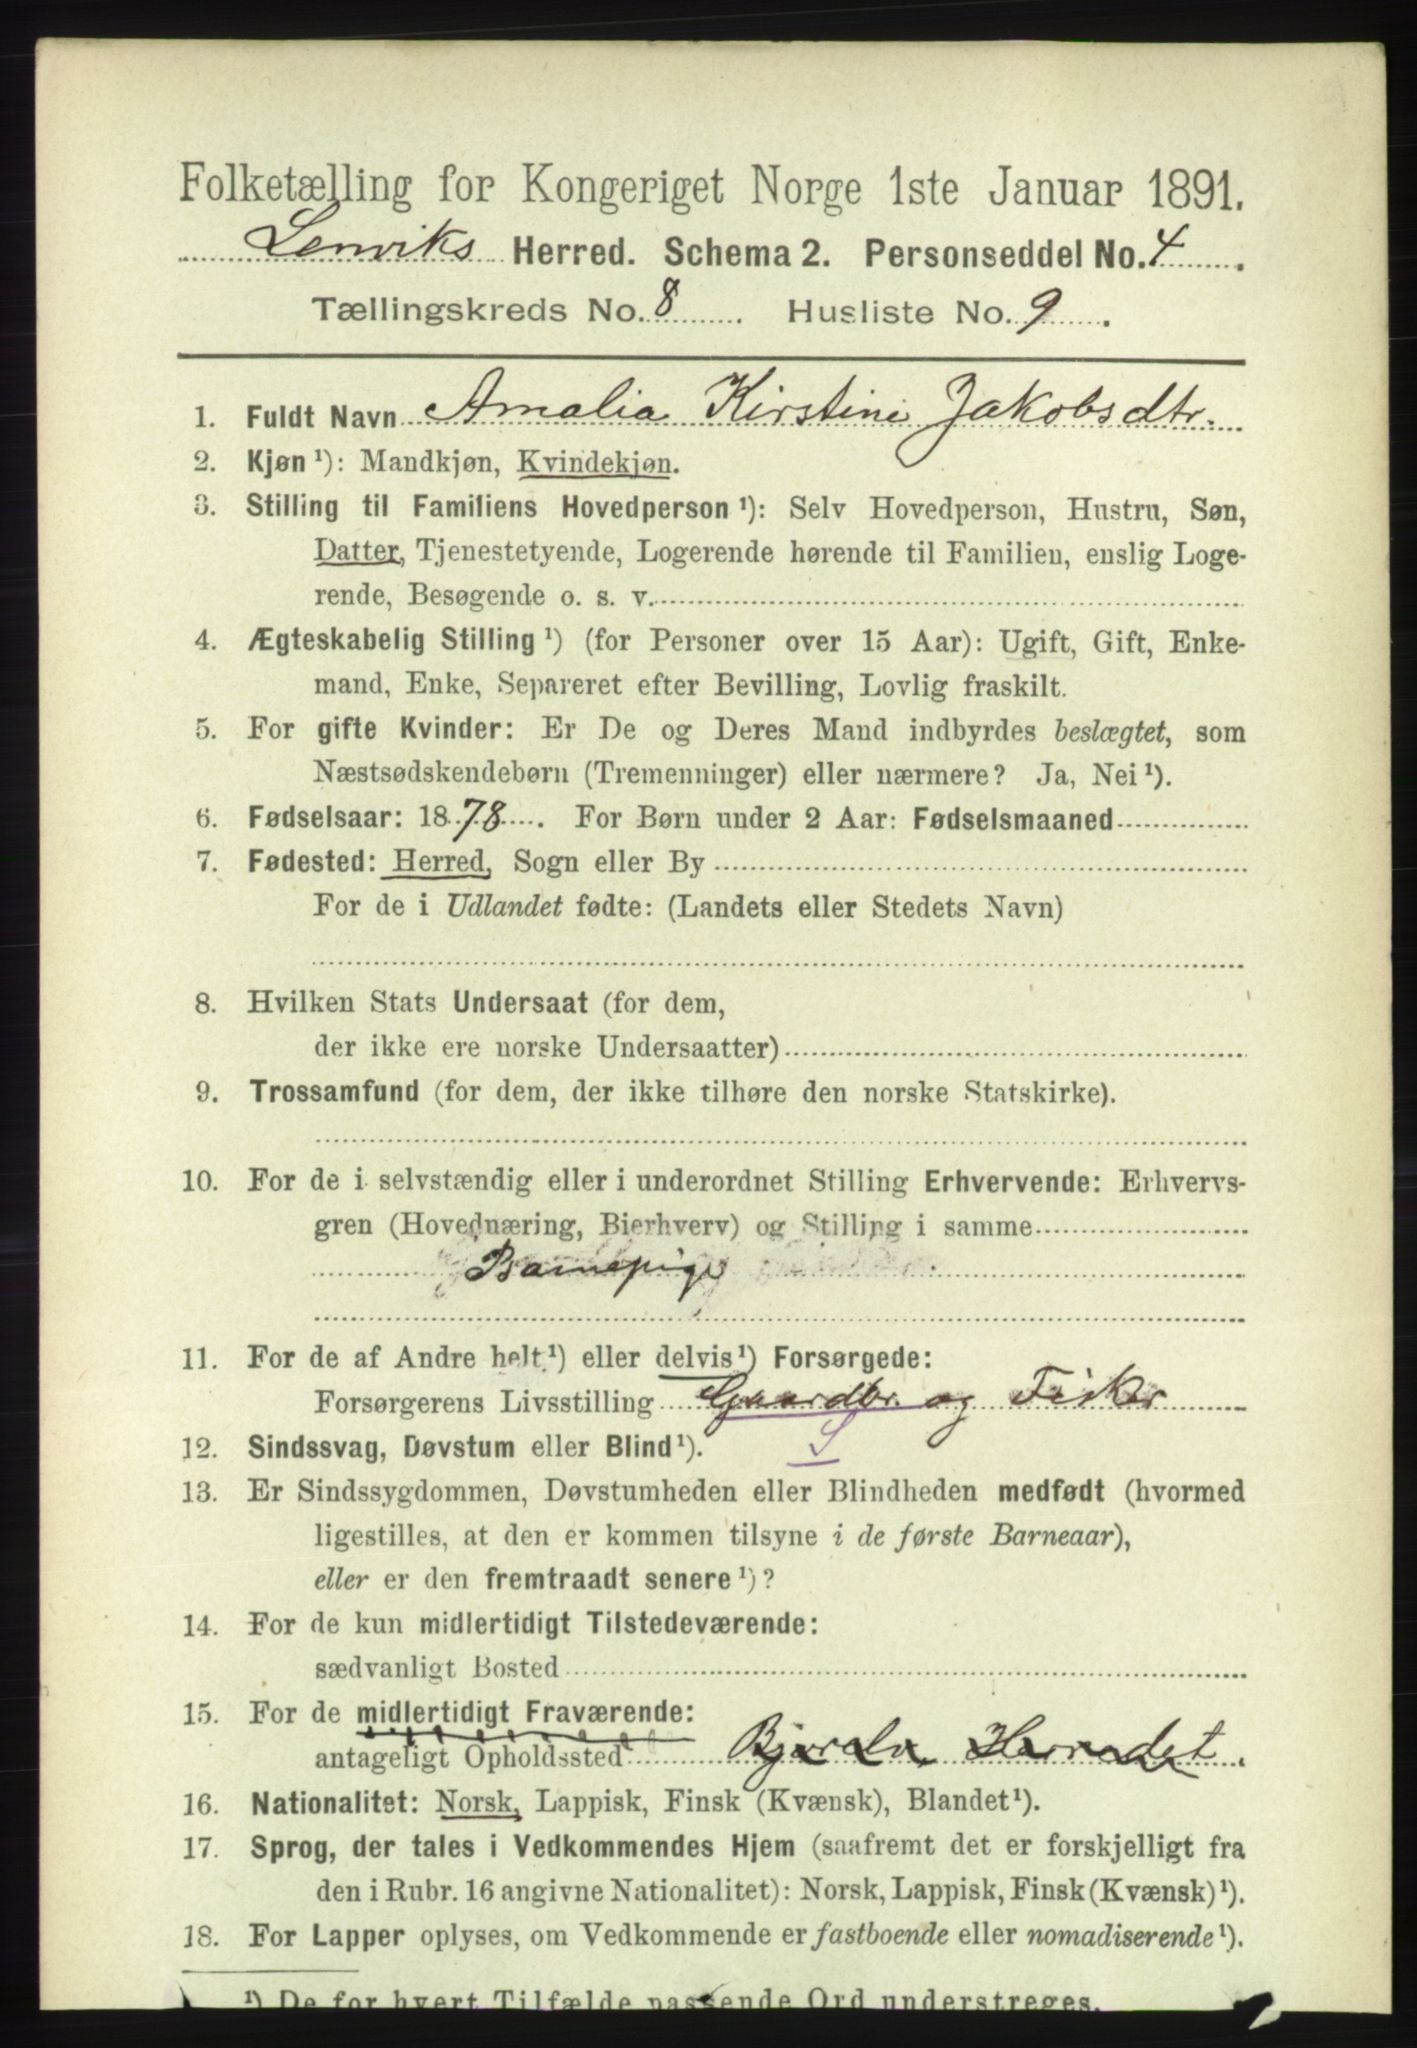 Folketælling for Kongeriget Norge 1ste Januar 1891.
Lenviks Herred. Schema 2. Personseddel No. 4.
Tællingskreds No. 8. Husliste No. 9.
1. Fuldt Navn Amalia Kirstine Jakobsdtr.
2. Kjøn ¹): Mandkjøn, Kvindekjøn.
3. Stilling til Familiens Hovedperson ¹): Selv Hovedperson, Hustru, Søn,
Datter, Tjenestetyende, Logerende hørende til Familien, enslig Loge-
rende, Besøgende o. s. v.
4. Ægteskabelig Stilling ¹) (for Personer over 15 Aar): Ugift, Gift, Enke-
mand, Enke, Separeret efter Bevilling, Lovlig fraskilt.
5. For gifte Kvinder: Er De og Deres Mand indbyrdes beslægtet, som
Næstsødskendebørn (Tremenninger) eller nærmere? Ja, Nei ¹).
6. Fødselsaar: 1878. For Børn under 2 Aar: Fødselsmaaned
7. Fødested: Herred, Sogn eller By
For de i Udlandet fødte: (Landets eller Stedets Navn)
8. Hvilken Stats Undersaat (for dem,
der ikke ere norske Undersaatter)
9. Trossamfund (for dem, der ikke tilhøre den norske Statskirke).
10. For de i selvstændig eller i underordnet Stilling Erhvervende: Erhvervs-
gren (Hovednæring, Bierhverv) og Stilling i samme
Barnepige
11. For de af Andre helt ¹) eller delvis ¹) Forsørgede:
Forsørgerens Livsstilling Gaardbr. og Fisker
12. Sindssvag, Døvstum eller Blind ¹). S
13. Er Sindssygdommen, Døvstumheden eller Blindheden medfødt (hvormed
ligestilles, at den er kommen tilsyne i de første Barneaar),
eller er den fremtraadt senere ¹)?
14. For de kun midlertidigt Tilstedeværende:
sædvanligt Bosted
15. For de midlertidigt Fraværende:
antageligt Opholdssted
16. Nationalitet: Norsk, Lappisk, Finsk (Kvænsk), Blandet ¹).
17. Sprog, der tales i Vedkommendes Hjem (saafremt det er forskjelligt fra
den i Rubr. 16 angivne Nationalitet): Norsk, Lappisk, Finsk (Kvænsk) ¹).
18. For Lapper oplyses, om Vedkommende er fastboende eller nomadiserende ¹).
¹) De for hvert Tilfælde passende Ord understreges.